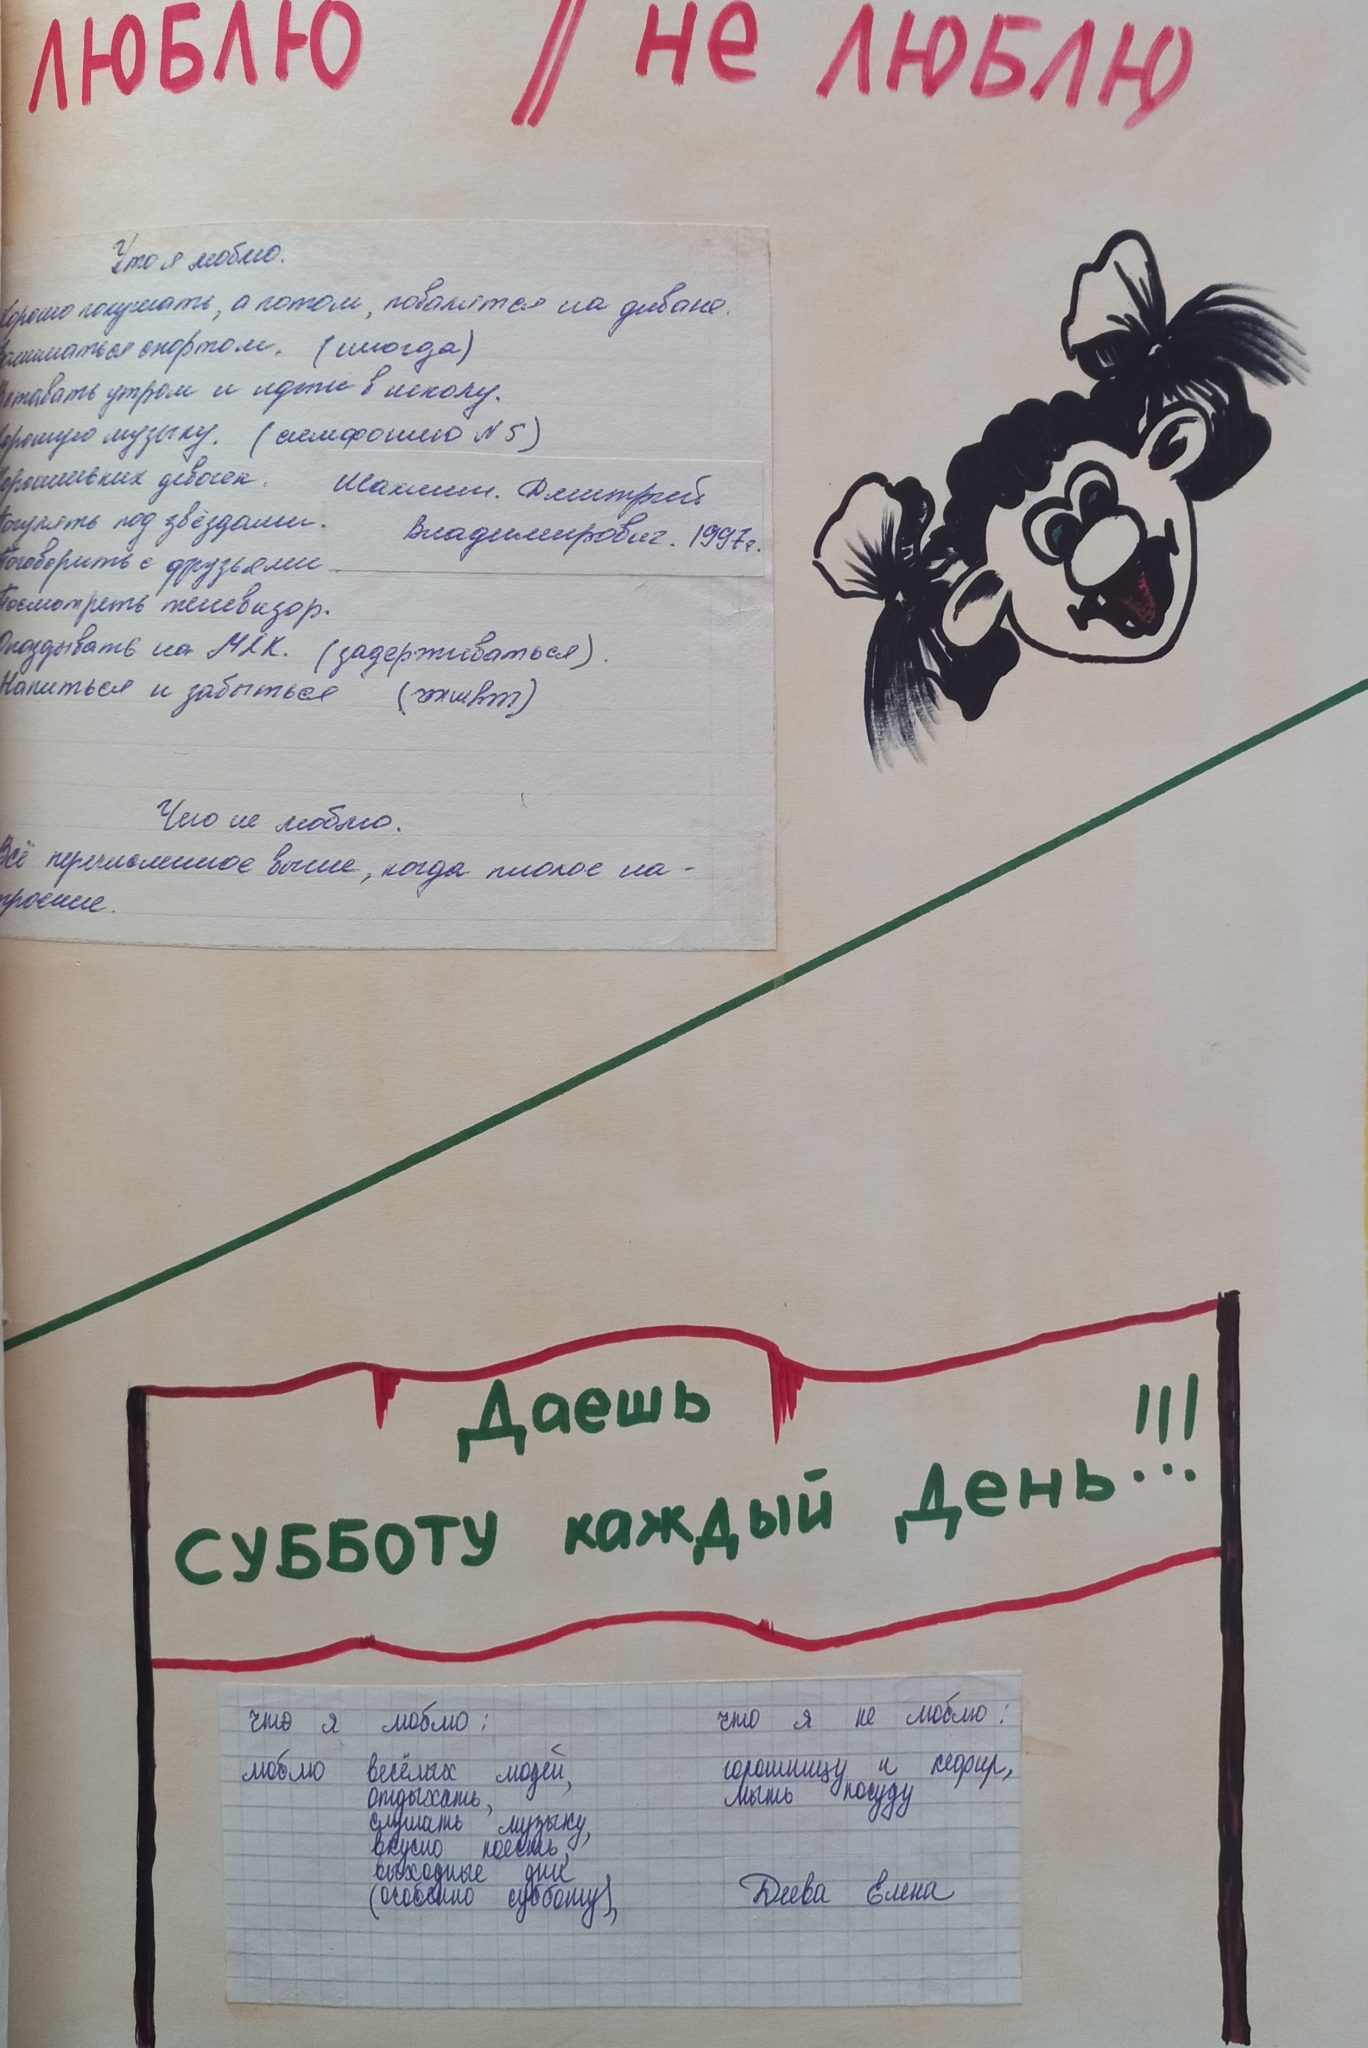 люблю // не люблю
Что я люблю.
Хорошо покушать, а потом, поваляться на диване.
Заниматься спортом. (иногда)
Вставать утром и идти в школу.
Хорошую музыку. (симфонию N 5)
Хорошеньких девочек.
Погулять под звёздами.
Поговорить с друзьями.
Посмотреть телевизор.
Опоздывать на МХК. (задерживаться).
Напиться и забыться
Дмитрий
Владимирович. 1997г.
Что не люблю.
Всё перечисленное выше, когда плохое на-
строение.
Даешь
СУББОТУ каждый день...!!!
что я люблю:
люблю весёлых людей,
отдыхать,
слушать музыку,
вкусно поесть,
выходные дни
(особенно субботу),
что я не люблю:
горошницу и кефир,
мыть посуду
Деева Елена